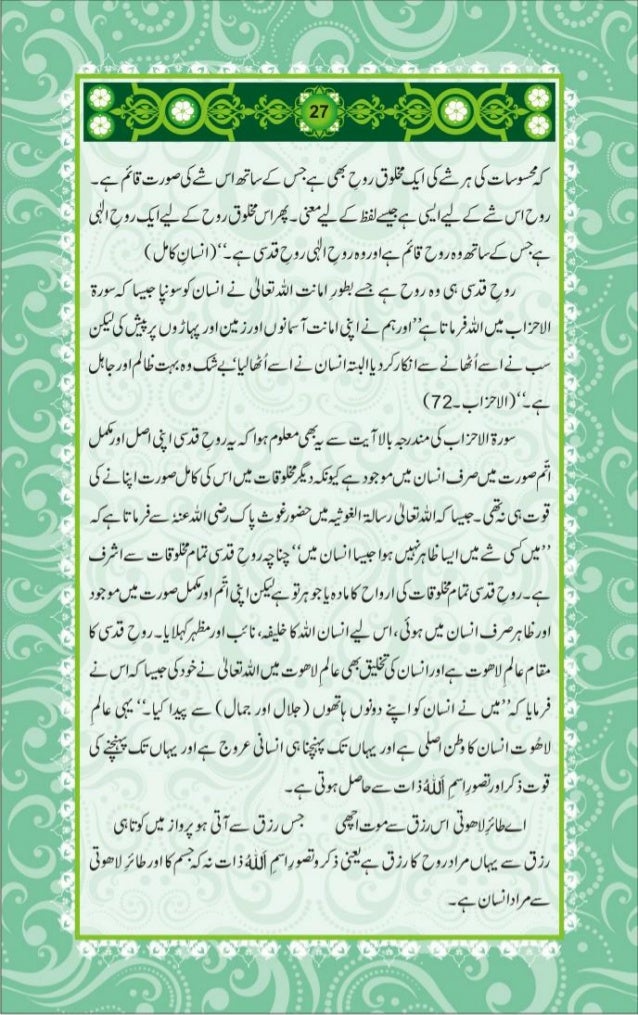 27
کہ محسوسات کی ہر شے کی ایک مخلوق روح بھی ہے جس کے ساتھ اس شے کی صورت قائم ہے۔
روح اس شے کے لیے ایسی ہے جیسے لفظ کے لیے معنی۔ پھر اس مخلوق روح کے لیے ایک روحِ الٰہی
ہے جس کے ساتھ وہ روح قائم ہے اور وہ روحِ الٰہی روحِ قدسی ہے۔‘‘ (انسانِ کامل)
روحِ قدسی ہی وہ روح ہے جسے بطورِ امانت اللہ تعالیٰ نے انسان کو سونپا جیسا کہ سورۃ
الاحزاب میں اللہ فرماتا ہے ’’اور ہم نے اپنی امانت آسمانوں اور زمین اور پہاڑوں پر پیش کی لیکن
سب نے اسے اُٹھانے سے انکار کر دیا البتہ انسان نے اسے اُٹھا لیا‘ بے شک وہ بہت ظالم اور جاہل
ہے۔‘‘ (الاحزاب۔72)
سورۃ الاحزاب کی مندرجہ بالا آیت سے یہ بھی معلوم ہوا کہ یہ روحِ قدسی اپنی اصل اور مکمل
اتّم صورت میں صرف انسان میں موجود ہے کیونکہ دیگر مخلوقات میں اس کی کامل صورت اپنانے کی
قوت ہی نہ تھی۔ جیسا کہ اللہ تعالیٰ رسالۃ الغوثیہ میں حضور غوث پاک رضی اللہ عنہٗ سے فرماتا ہے کہ
’’میں کسی شے میں ایسا ظاہر نہیں ہوا جیسا انسان میں‘‘ چنانچہ روحِ قدسی تمام مخلوقات سے اشرف
ہے۔ روحِ قدسی تمام مخلوقات کی ارواح کا مادہ یا جوہر تو ہے لیکن اپنی اتّم اور مکمل صورت میں موجود
اور ظاہر صرف انسان میں ہوئی، اس لیے انسان اللہ کا خلیفہ، نائب اور مظہر کہلایا۔ روحِ قدسی کا
مقام عالمِ لاھوت ہے اور انسان کی تخلیق بھی عالمِ لاھوت میں اللہ تعالیٰ نے خود کی جیسا کہ اس نے
فرمایا کہ ’’میں نے انسان کو اپنے دونوں ہاتھوں (جلال اور جمال) سے پیدا کیا۔‘‘ یہی عالمِ
لاھُوت انسان کا وطنِ اصلی ہے اور یہاں تک پہنچنا ہی انسانی عروج ہے اور یہاں تک پہنچنے کی
قوت ذکر اور تصورِ اسمِ اَللّٰہُ ذات سے حاصل ہوتی ہے۔
اے طائرِ لاھوتی اس رزق سے موت اچھی جس رزق سے آتی ہو پرواز میں کوتاہی
رزق سے یہاں مراد روح کا رزق ہے یعنی ذکر و تصورِ اسمِ اَللّٰہُ ذات نہ کہ جسم کا اور طائرِ لاھوتی
سے مراد انسان ہے۔